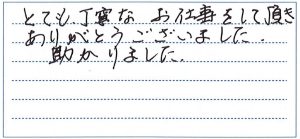 とても丁寧な お仕事をして頂き
ありがとうございました.
助かりました.